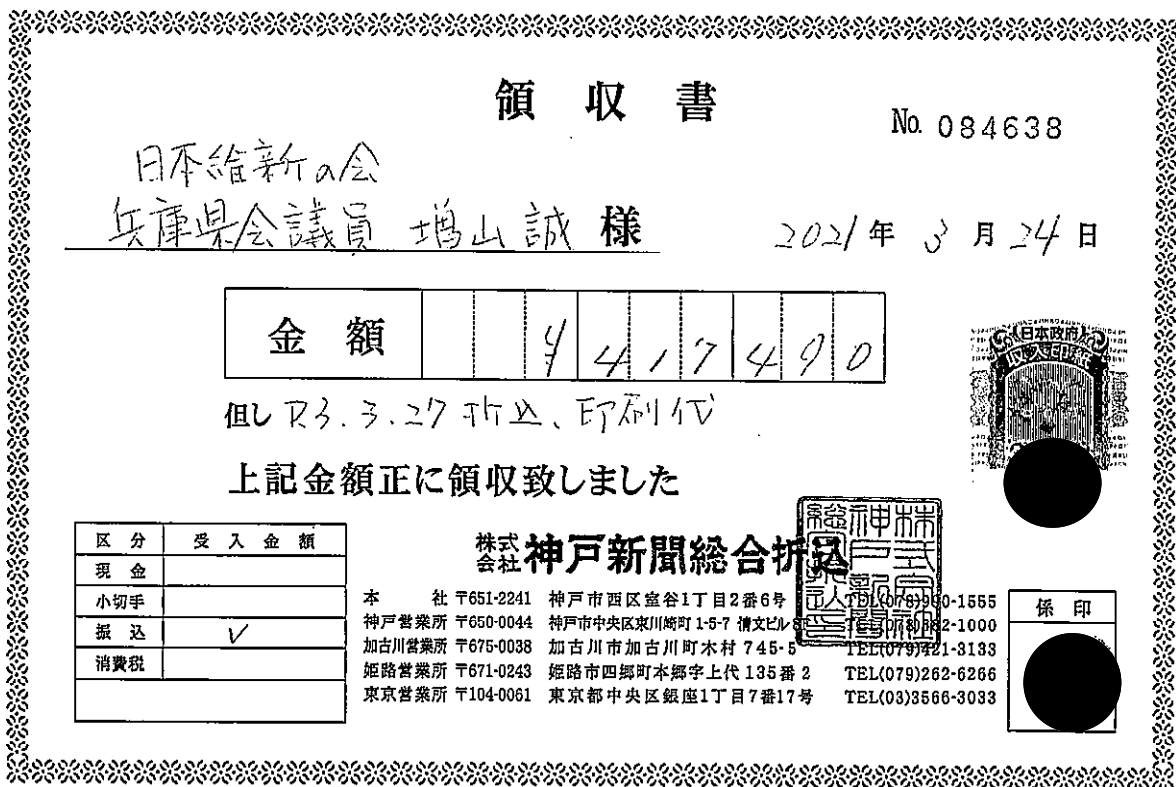 領収書
No. 084638
日本維新の会
兵庫県会議員 増山誠 様
2021年 3月 24日
金額 ¥417490
但し R3.3.27 折込、印刷代
上記金額正に領収致しました
区分 受入金額
現金
小切手
振込 ✓
消費税
株式会社 神戸新聞総合折込
本社 〒651-2241 神戸市西区室谷1丁目2番6号 TEL(078)990-1555
神戸営業所 〒650-0044 神戸市中央区東川崎町1-5-7 情文ビル TEL(078)382-1000
加古川営業所 〒675-0038 加古川市加古川町木村745-5 TEL(079)421-3133
姫路営業所 〒671-0243 姫路市四郷町本郷字上代135番2 TEL(079)262-6266
東京営業所 〒104-0061 東京都中央区銀座1丁目7番17号 TEL(03)3566-3033
係印
日本政府
収入印紙
株式会社神戸新聞総合折込